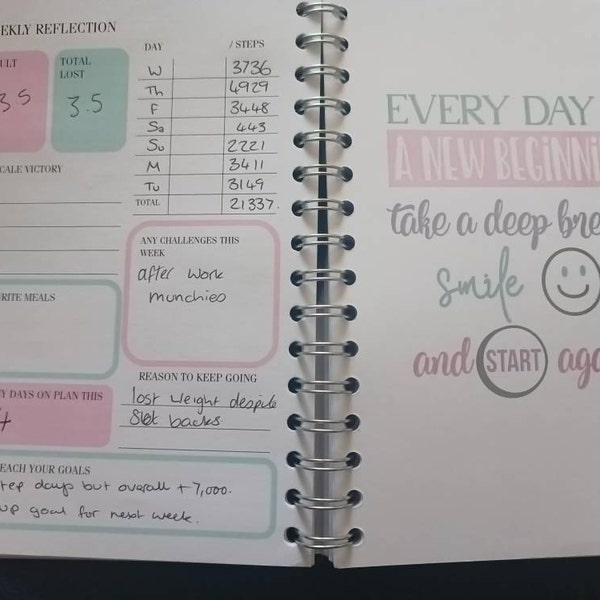 EKLY REFLECTION
ULT
3.5
TOTAL
LOST
3.5
CALE VICTORY
RITE MEALS
Y DAYS ON PLAN THIS
4
DAY / STEPS
W 3736
Th 4929
F 3448
Sa 443
Su 2221
M 3411
Tu 3149
TOTAL 21337.
ANY CHALLENGES THIS
WEEK
after work
munchies
REASON TO KEEP GOING
lost weight despite
backs
EACH YOUR GOALS
tep days but overall +7,000.
up goal for next week.
EVERY DAY
A NEW BEGINNI
take a deep bre
smile
and START aga